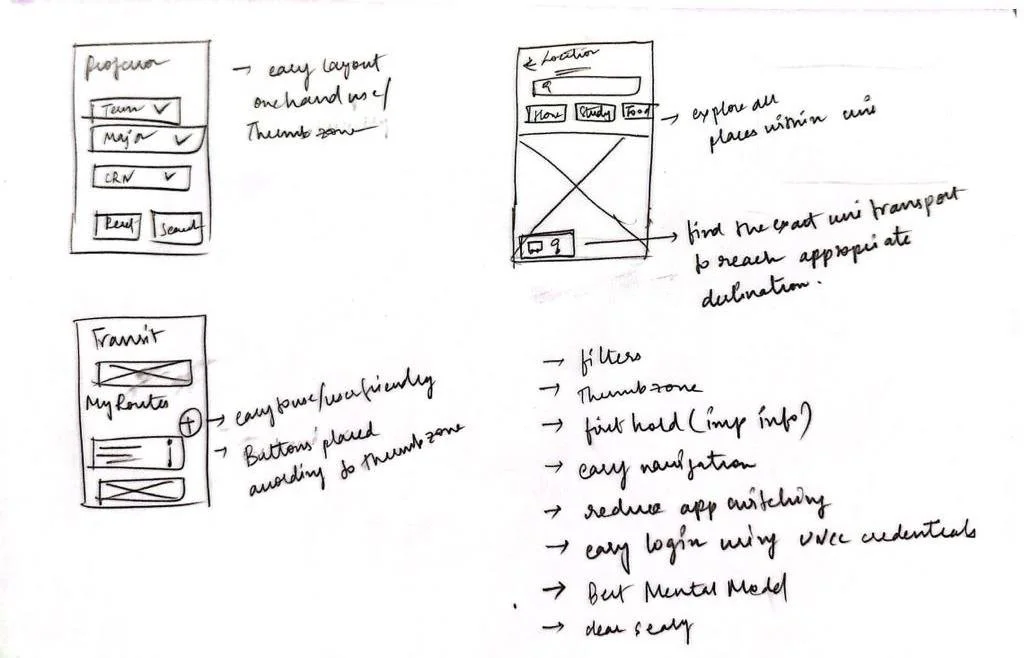 Professor
Term
Major
CRN
Reset Search
→ easy layout
one hand use/
Thumb zone
← Location
Study Food
→ explore all
places within uni
→ find the exact uni transport
to reach appropriate
destination.
Transit
My Routes
+
→ easy to use/user friendly
→ Buttons placed
according to thumb zone
→ filters
→ Thumb zone
→ first hold (imp info)
→ easy navigation
→ reduce app switching
→ easy login using UNCC credentials
→ Best Mental Model
→